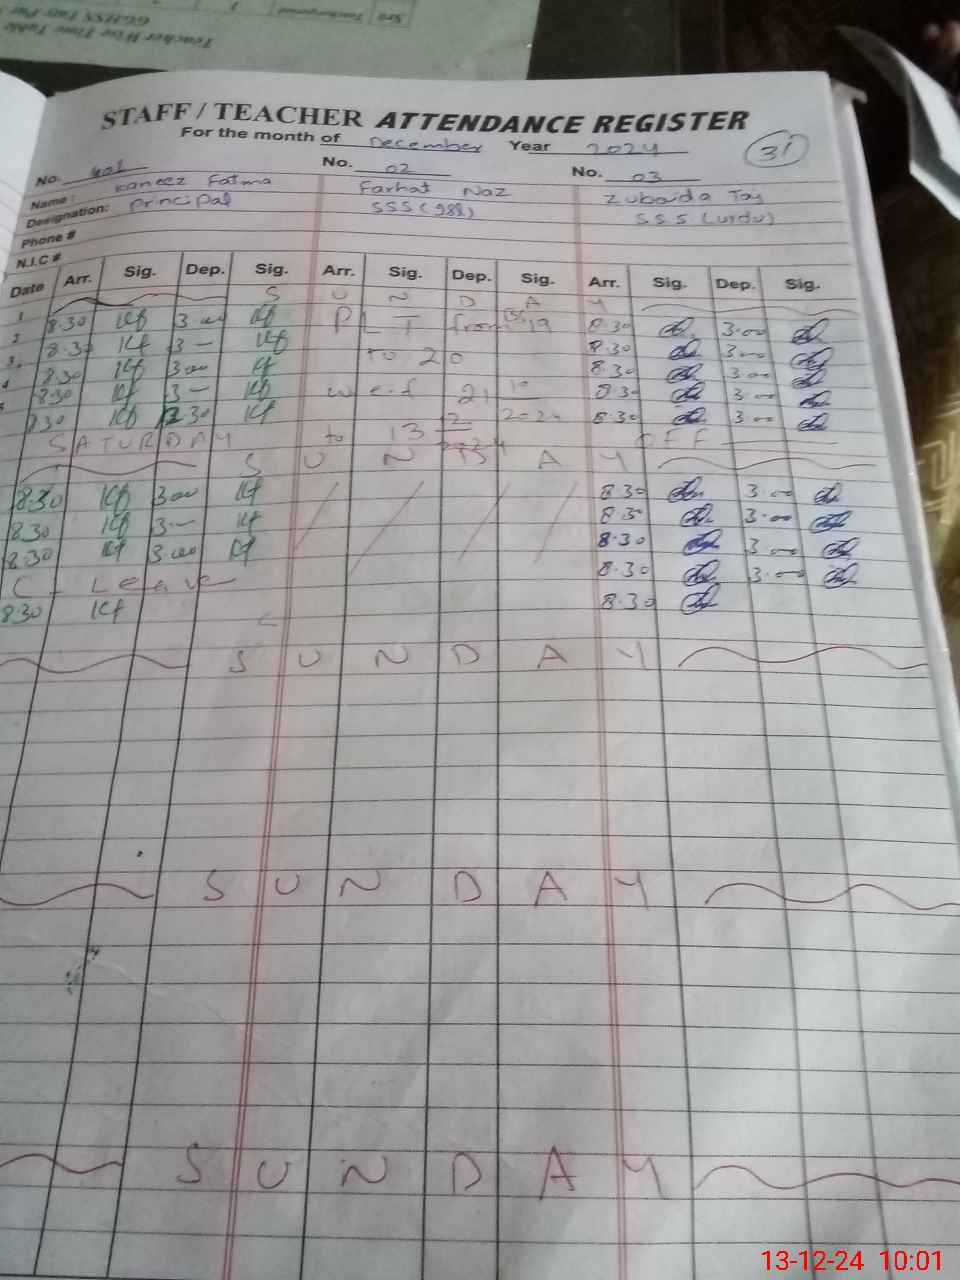 Teacher Wise Time Table
STAFF / TEACHER ATTENDANCE REGISTER
For the month of December Year 2024
31
No. No. 02 No. 03
Name: Kaneez Fatma Farhat Naz Zubaida Taj
Designation: Principal SSS SSS (urdu)
Phone #
N.I.C #
Date Arr. Sig. Dep. Sig. Arr. Sig. Dep. Sig. Arr. Sig. Dep. Sig.
1 S U N D A Y
2 8.30 Kf 3.00 Kf P L T from 8.30 3.00
3 8.30 Kf 3 — Kf to 20 8.30 3.00
4 8.30 Kf 3.00 Kf 8.30 3.00
5 8.30 Kf 3 — Kf w e.f 21 10 8.30 3.00
8.30 Kf 2.30 Kf 8.30 3.00
SATURDAY to 13 OFF
S U N D A Y
8.30 Kf 3.00 Kf 8.30 3.00
8.30 Kf 3 — Kf 8.30 3.00
8.30 Kf 3.00 Kf 8.30 3.00
C Leave 8.30 3.00
8.30 Kf 8.30
S U N D A Y
S U N D A Y
S U N D A Y
13-12-24 10:01